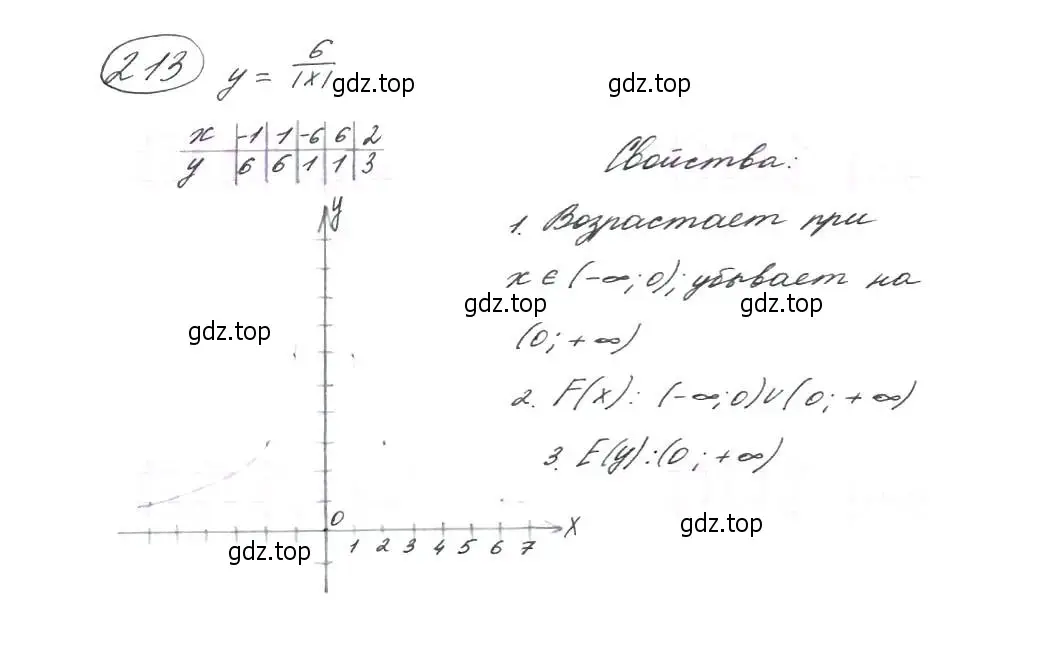 213 y = 6/|x| gdz.top gdz.top
x -1 1 -6 6 2
y 6 6 1 1 3
Свойства:
y
1. Возрастает при
x ∈ (-∞; 0); убывает на
gdz.top gdz.top
gdz.top
(0; +∞)
2. F(x): (-∞; 0) ∪ (0; +∞)
3. E(y): (0; +∞)
0
X
gdz.top
1 2 3 4 5 6 7
gdz.top